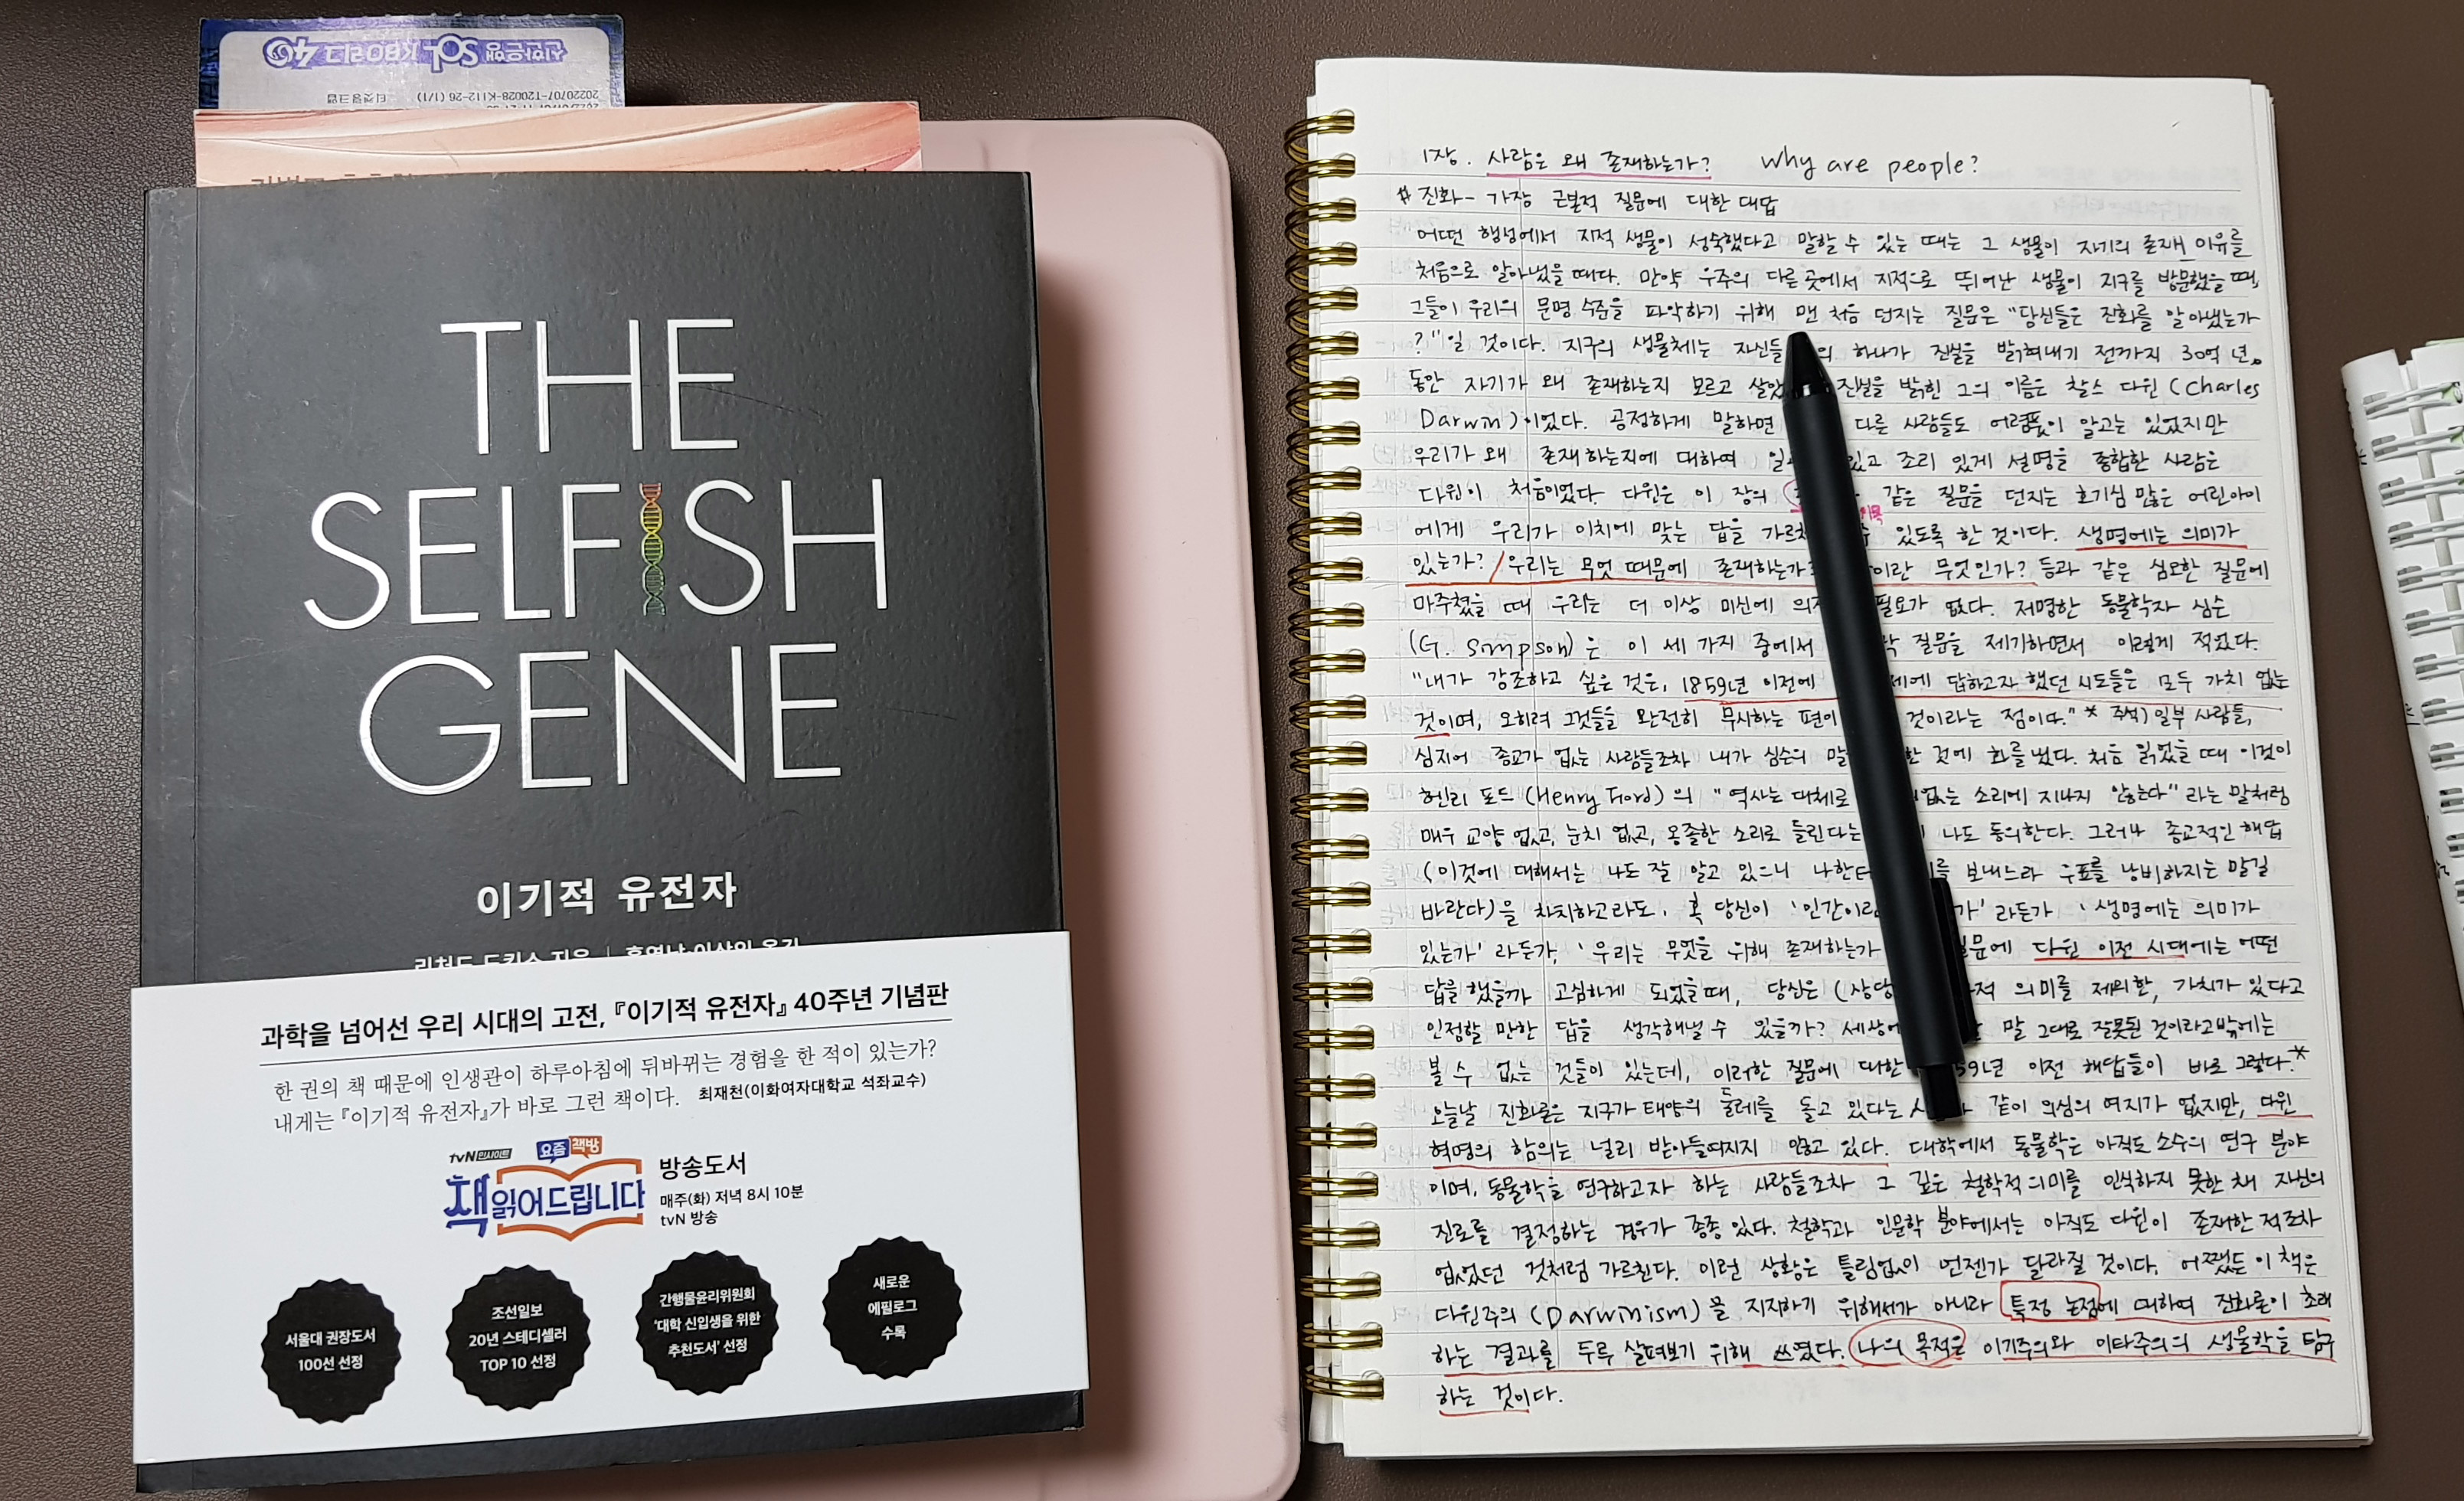 신한은행 SOL KBO리그 40
20220707-T20028-K112-26 (1/1) 티켓링크랩
THE
SELFISH
GENE
이기적 유전자
리처드 도킨스 지음 | 홍영남·이상임 옮김
과학을 넘어선 우리 시대의 고전, 『이기적 유전자』 40주년 기념판
한 권의 책 때문에 인생관이 하루아침에 뒤바뀌는 경험을 한 적이 있는가?
내게는 『이기적 유전자』가 바로 그런 책이다. 최재천(이화여자대학교 석좌교수)
tvN 인사이트
요즘책방
책 읽어드립니다
방송도서
매주(화) 저녁 8시 10분
tvN 방송
서울대 권장도서
100선 선정
조선일보
20년 스테디셀러
TOP 10 선정
간행물윤리위원회
'대학 신입생을 위한
추천도서' 선정
새로운
에필로그
수록
1장. 사람은 왜 존재하는가? Why are people?
# 진화- 가장 근본적 질문에 대한 대답
어떤 행성에서 지적 생물이 성숙했다고 말할 수 있는 때는 그 생물이 자기의 존재 이유를
처음으로 알아냈을 때다. 만약 우주의 다른 곳에서 지적으로 뛰어난 생물이 지구를 방문했을 때,
그들이 우리의 문명 수준을 파악하기 위해 맨 처음 던지는 질문은 "당신들은 진화를 알아냈는가
?"일 것이다. 지구의 생물체는 자신들 의 하나가 진실을 밝혀내기 전까지 30억 년
동안 자기가 왜 존재하는지 모르고 살았 진실을 밝힌 그의 이름은 찰스 다윈 (Charles
Darwin)이었다. 공정하게 말하면 다른 사람들도 어렴풋이 알고는 있었지만
우리가 왜 존재하는지에 대하여 일 있고 조리 있게 설명을 종합한 사람은
다윈이 처음이었다. 다윈은 이 장의 같은 질문을 던지는 호기심 많은 어린아이
에게 우리가 이치에 맞는 답을 가르쳐 수 있도록 한 것이다. 생명에는 의미가
있는가? / 우리는 무엇 때문에 존재하는가 이란 무엇인가? 등과 같은 심오한 질문에
마주쳤을 때 우리는 더 이상 미신에 의지 필요가 없다. 저명한 동물학자 심슨
(G. Simpson)은 이 세 가지 중에서 막 질문을 제기하면서 이렇게 적었다.
"내가 강조하고 싶은 것은, 1859년 이전에 제에 답하고자 했던 시도들은 모두 가치 없는
것이며, 오히려 그것들을 완전히 무시하는 편이 것이라는 점이다." * 주석) 일부 사람들,
심지어 종교가 없는 사람들조차 내가 심슨의 말 한 것에 화를 냈다. 처음 읽었을 때 이것이
헨리 포드 (Henry Ford)의 "역사는 대체로 없는 소리에 지나지 않는다" 라는 말처럼
매우 교양 없고, 눈치 없고, 옹졸한 소리로 들린다는 나도 동의한다. 그러나 종교적인 해답
(이것에 대해서는 나도 잘 알고 있으니 나한테 를 보내느라 우표를 낭비하지는 말길
바란다)을 차치하고라도, 혹 당신이 '인간이란 가' 라든가 '생명에는 의미가
있는가' 라든가, '우리는 무엇을 위해 존재하는가 질문에 다윈 이전 시대에는 어떤
답을 했을까 고심하게 되었을 때, 당신은 (상당 적 의미를 제외한, 가치가 있다고
인정할 만한 답을 생각해낼 수 있을까? 세상에 말 그대로 잘못된 것이라고밖에는
볼 수 없는 것들이 있는데, 이러한 질문에 대한 59년 이전 해답들이 바로 그렇다.*
오늘날 진화론은 지구가 태양의 둘레를 돌고 있다는 같이 의심의 여지가 없지만, 다윈
혁명의 함의는 널리 받아들여지지 않고 있다. 대학에서 동물학은 아직도 소수의 연구 분야
이며, 동물학을 연구하고자 하는 사람들조차 그 깊은 철학적 의미를 인식하지 못한 채 자신의
진로를 결정하는 경우가 종종 있다. 철학과 인문학 분야에서는 아직도 다윈이 존재한 적조차
없었던 것처럼 가르친다. 이런 상황은 틀림없이 언젠가 달라질 것이다. 어쨌든 이 책은
다윈주의 (Darwinism)를 지지하기 위해서가 아니라 특정 논점에 대하여 진화론이 초래
하는 결과를 두루 살펴보기 위해 쓰였다. 나의 목적은 이기주의와 이타주의의 생물학을 탐구
하는 것이다.